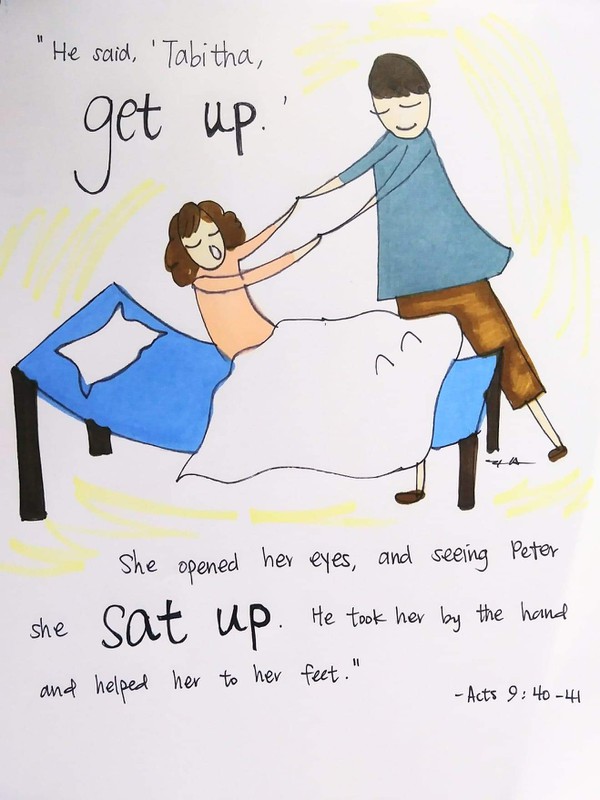 "He said, 'Tabitha,
get up.'
She opened her eyes, and seeing Peter
she sat up. He took her by the hand
and helped her to her feet."
-Acts 9:40-41